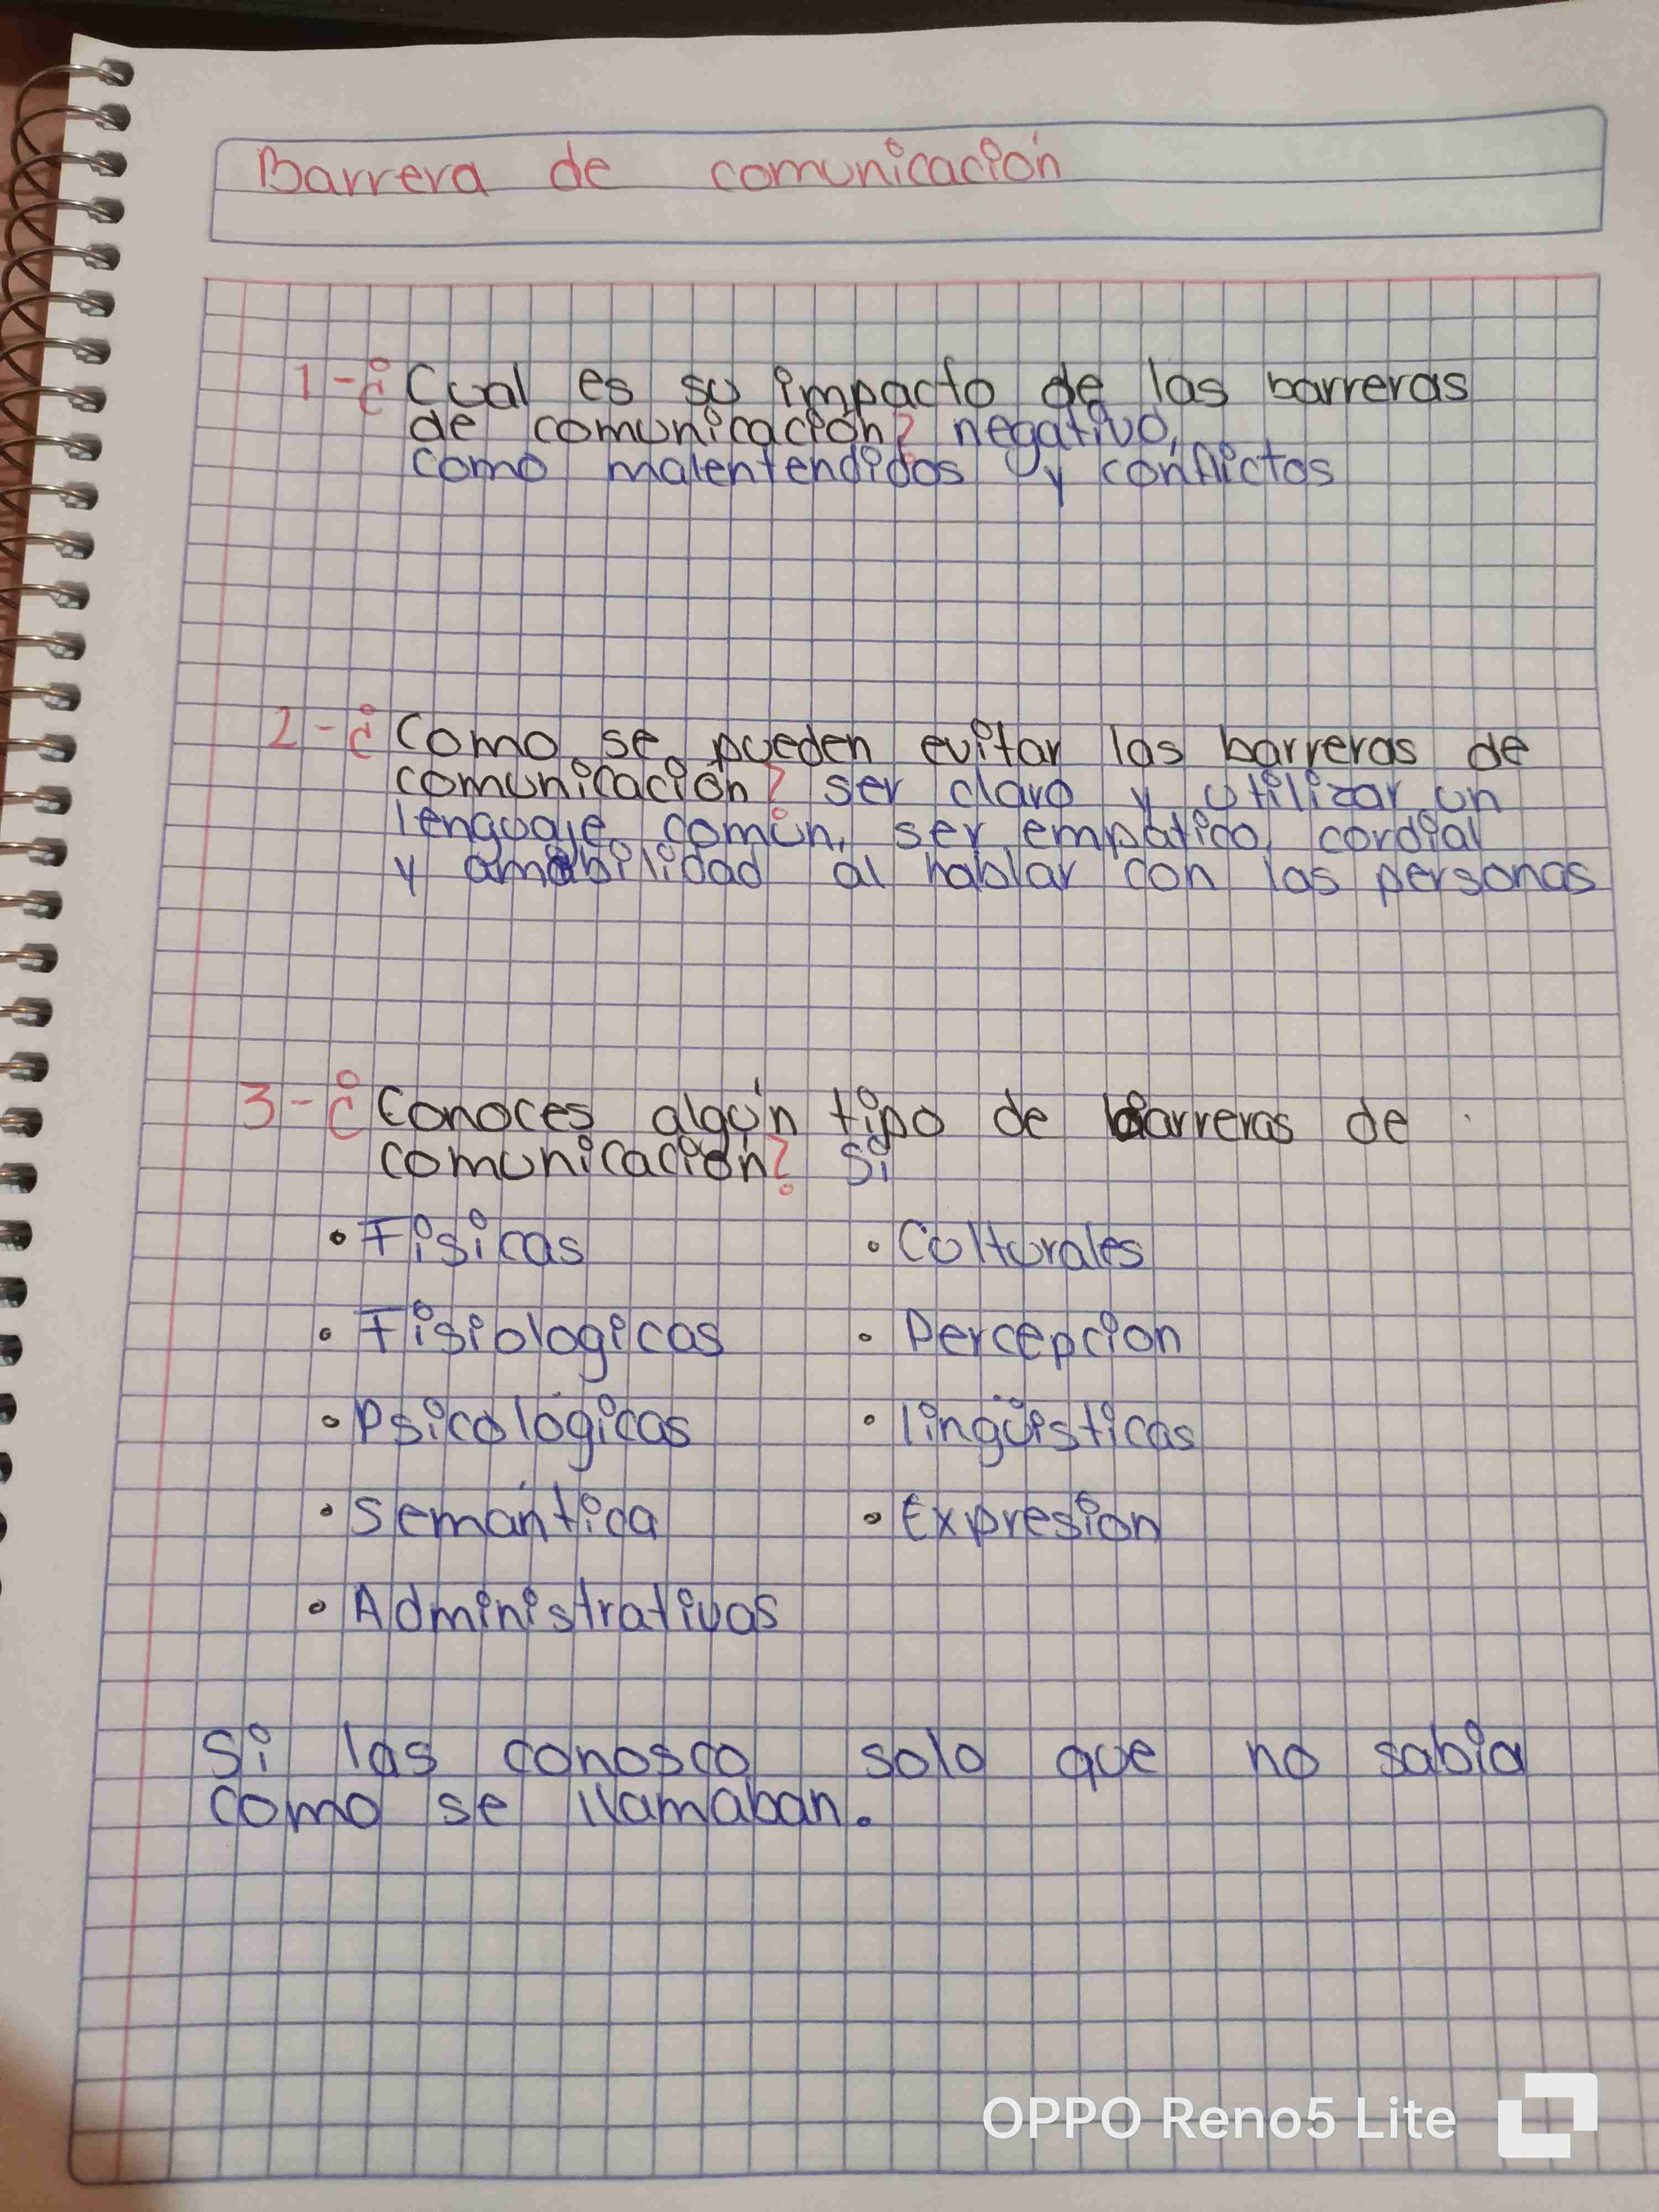 Barrera de comunicación
1-¿Cual es su impacto de las barreras
de comunicación? negativo,
como malentendidos y conflictos
2-¿Como se pueden evitar las barreras de
comunicación? ser claro y utilizar un
lenguaje común, ser empatico, cordial
y amabilidad al hablar con las personas
3-¿Conoces algún tipo de barreras de
comunicación? Si
• Fisicas • Culturales
• Fisiologicas • Percepcion
• Psicológicas • lingüisticas
• semántica • Expresion
• Administrativas
Si las conosco solo que no sabia
como se llamaban.
OPPO Reno5 Lite